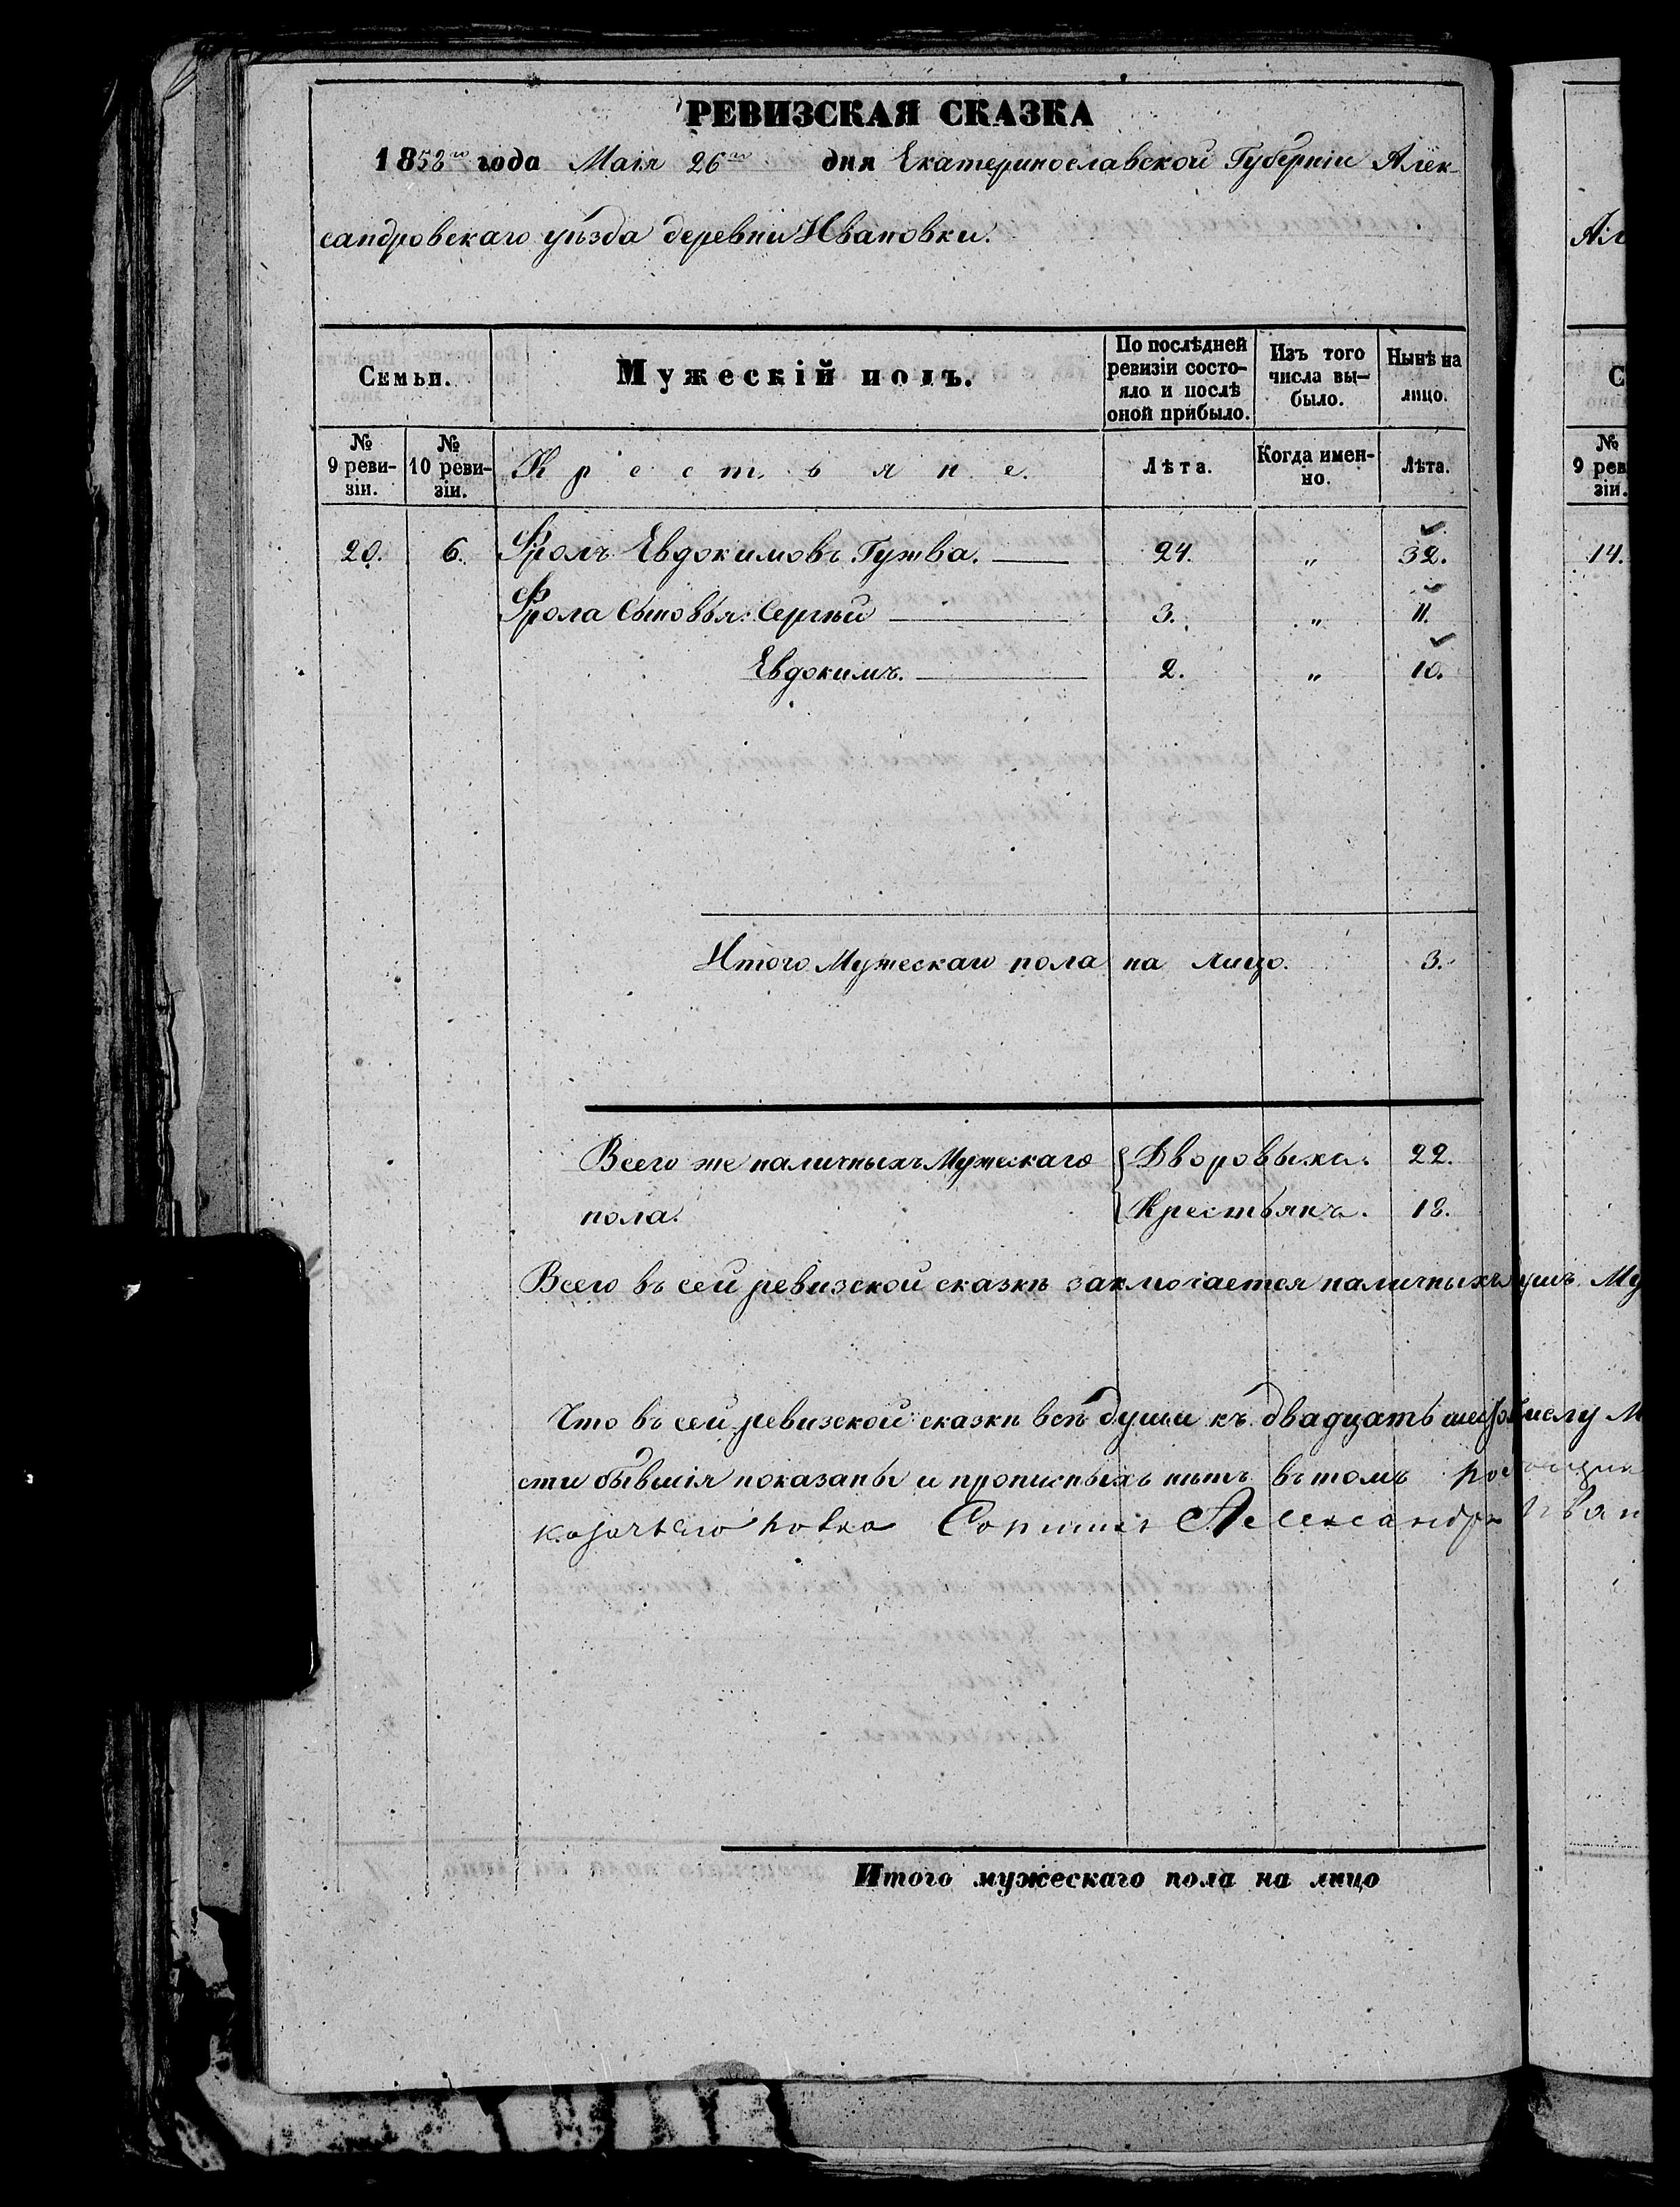 РЕВИЗСКАЯ СКАЗКА
1858го года Маія 26го дня Екатеринославской Губерніи Алек-
сандровскаго уѣзда деревни Ивановки.
Семьи.
Мужескій полъ.
По послѣдней ревизіи состо-яло и послѣ оной прибыло.
Изъ того числа вы-было.
Нынѣ на лицо.
№ 9 реви-зіи.
№ 10 реви-зіи.
Крестьяне.
Лѣта.
Когда имен-но.
Лѣта.
20. 6. Фролъ Евдокимовъ Гужва. 24. „ 32.
Фрола Сыновья: Сергѣй 3. „ 11.
Евдокимъ. 2. „ 10.
Итого Мужескаго пола на лицо. 3.
Всего же наличныхъ Мужескаго { Дворовыхъ. 22.
пола. { Крестьянъ. 18.
Всего въ сей ревизской сказкѣ заключается наличныхъ душъ Му
Что въ сей ревизской сказкѣ всѣ души къ двадцать числу М
сти бывшія показаны и прописныхъ нѣтъ въ томъ
казачьяго полка Александръ Иван
Итого мужескаго пола на лицо
Ал
С
№ 9 рев зіи.
14.